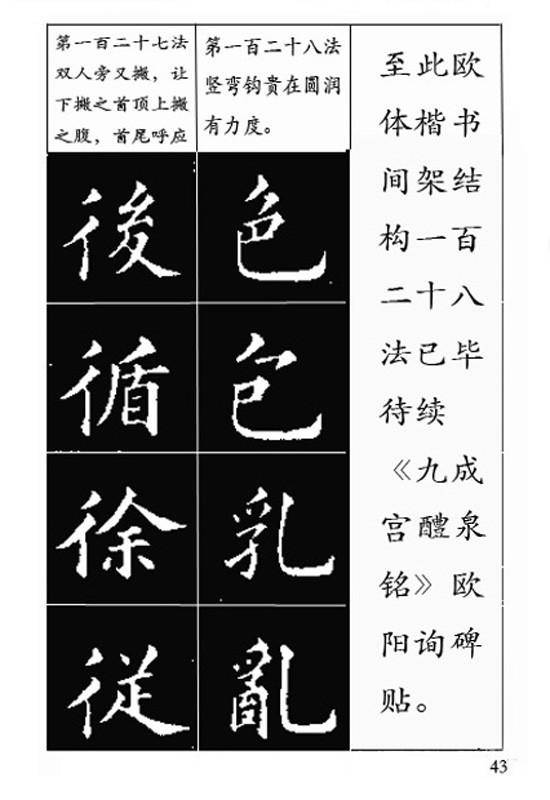 第一百二十七法
双人旁又撇，让
下撇之首顶上撇
之腹，首尾呼应
第一百二十八法
竖弯钩贵在圆润
有力度。
後
循
徐
従
色
包
乳
亂
至此欧
体楷书
间架结
构一百
二十八
法已毕
待续
《九成
宫醴泉
铭》欧
阳询碑
贴。
43